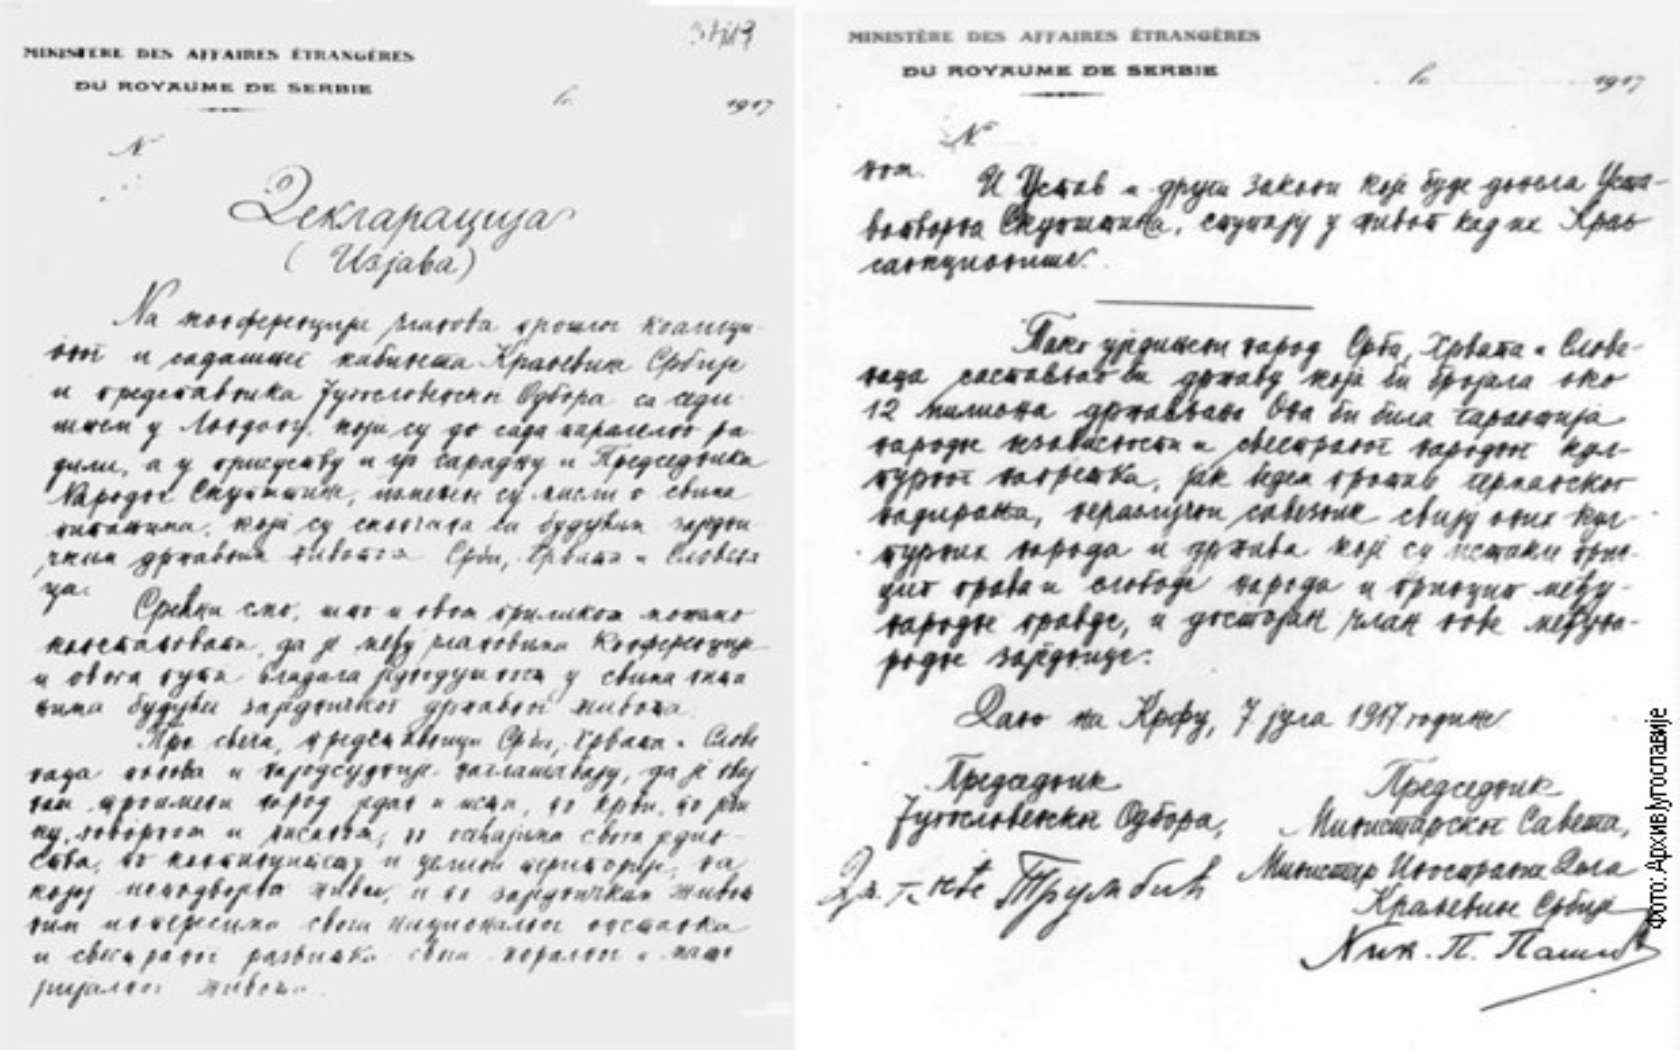 MINISTÈRE DES AFFAIRES ÉTRANGÈRES
DU ROYAUME DE SERBIE
le 1917
N
Декларација
(Изјава)
На конференцији чланова прошлог коалици-
оног и садашњег кабинета Краљевине Србије
и представника Југословенског Одбора са седи-
штем у Лондону, који су до сада паралелно ра-
дили, а у присуству и уз сарадњу и Председника
Народне Скупштине, измењене су мисли о свима
питањима, која су скопчана са будућим заједни-
чким државним животом Срба, Хрвата и Словена-
ца.
Срећни смо, што и овом приликом можемо
констатовати, да је међу члановима конференције
и овога пута владала једнодушност у свима пита
њима будућег заједничког државног живота.
Пре свега, представници Срба, Хрвата и Слове
наца понова и најодсудније наглашавају, да је овај
наш троимени народ један и исти, по крви, по јези
ку, говорном и писаном, по осећајима свога једин-
ства, по континуитету и целини територије, на
којој неподвојено живи, и по заједничким живот
ним интересима свога националног опстанка
и свестраног развитка свога моралног и мате
ријалног живота.
MINISTÈRE DES AFFAIRES ÉTRANGÈRES
DU ROYAUME DE SERBIE
le 1917
N
ном. И Устав и други закони које буде донела Уста-
вотворна Скупштина, ступају у живот кад их Краљ
санкционише.
Тако уједињени народ Срба, Хрвата и Слове-
наца састављао би државу која би бројала око
12 милиона држављана. Она би била гарантија
народне независности и свестраног народног кул-
турног напретка, јак бедем против германског
надирања, неразлучни савезник свију оних кул-
турних народа и држава које су истакле прин-
цип права и слободе народа и принцип међу-
народне правде, и достојан члан нове међуна-
родне заједнице.
Дано на Крфу, 7 јула 1917 године
Председник
Југословенског Одбора,
Др. Анте Трумбић
Председник
Министарског Савета,
Министар Иностраних Дела
Краљевине Србије
Ник. П. Пашић
Фото: Архив Југославије